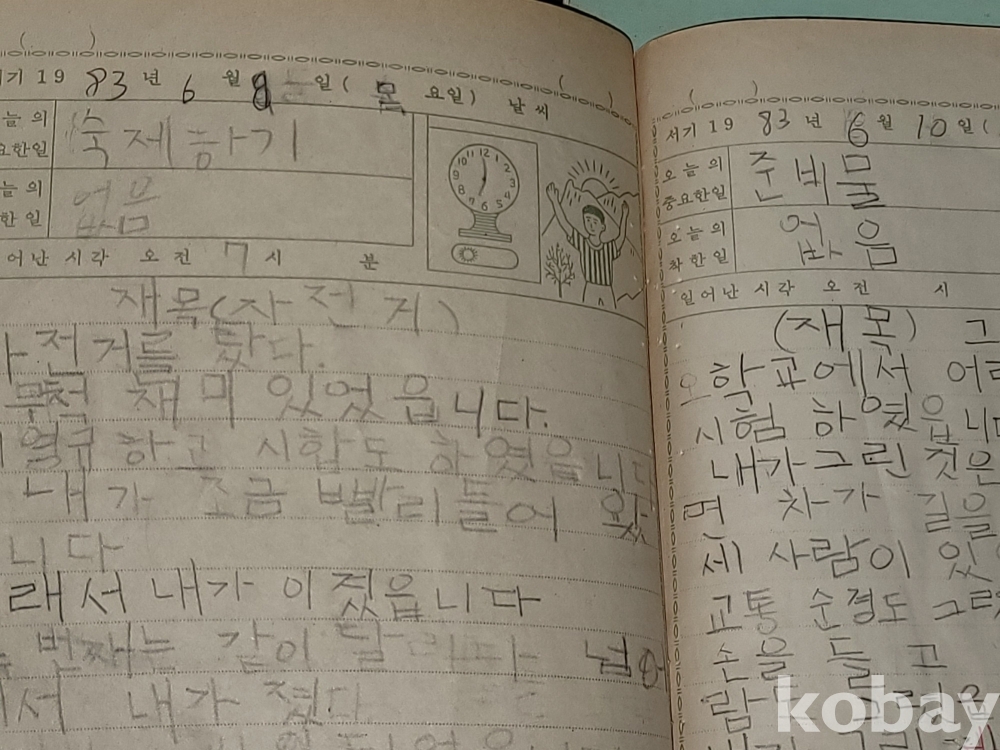 서기 19 83 년 6 월 8 일 ( 목 요일) 날씨
늘 의
요한일 숙제하기
늘 의
한 일 없음
어난 시 각 오 전 7 시 분
재목(자전거)
전거를 탔다.
무척 재미 있었읍니다.
하고 시합도 하였읍니다
내가 조금 빨리들어 왔
니다
래서 내가 이젔읍니다
번째는 같이 달리다 넘어
서 내가 졌다
서기 19 83 년 6 월 10 일 (
오 늘 의
중요한일 준비물
오 늘 의
착 한 일 없음
일어난 시 각 오 전 시
(재목) 그
학교에서 어
시험 하였읍니다
내가그린 것은
면 차가 길을
세 사람이 있
교통 순경도 그
손을 들고
람
kobay